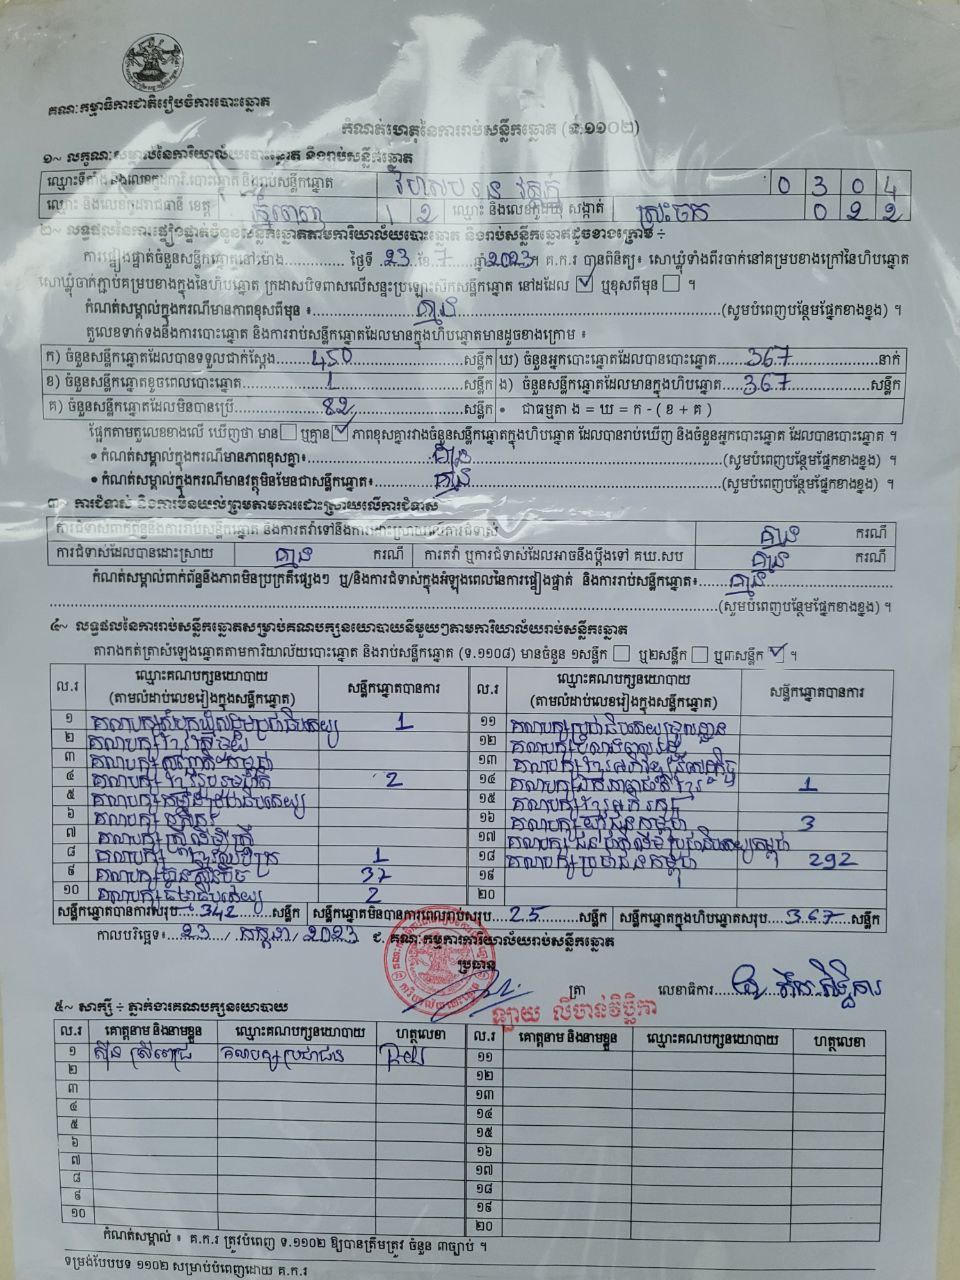 គណៈកម្មាធិការជាតិរៀបចំការបោះឆ្នោត
កំណត់ហេតុនៃការរាប់សន្លឹកឆ្នោត (ទ.១១០២)
១~ លក្ខណៈសម្គាល់នៃការិយាល័យបោះឆ្នោត និងរាប់សន្លឹកឆ្នោត
ឈ្មោះទីតាំង និងលេខកូដការិ.បោះឆ្នោត និងរាប់សន្លឹកឆ្នោត 0 3 0 4
ឈ្មោះ និងលេខកូដរាជធានី ខេត្ត ភ្នំពេញ 1 2 ឈ្មោះ និងលេខកូដឃុំ សង្កាត់ ស្រះចក 0 2 2
២~ លទ្ធផលនៃការផ្ទៀងផ្ទាត់ចំនួនសន្លឹកឆ្នោតតាមការិយាល័យបោះឆ្នោត និងរាប់សន្លឹកឆ្នោតដូចខាងក្រោម ÷
ការផ្ទៀងផ្ទាត់ចំនួនសន្លឹកឆ្នោតនៅម៉ោង............... ថ្ងៃទី 23 ខែ 7 ឆ្នាំ 2023។ គ.ក.រ បានពិនិត្យ៖ សោឃ្លុំទាំងពីរចាក់នៅគម្របខាងក្រៅនៃហិបឆ្នោត
សោឃ្លុំចាក់ភ្ជាប់គម្របខាងក្នុងនៃហិបឆ្នោត ក្រដាសបិទពាសលើសន្ទះប្រឡោះស៊កសន្លឹកឆ្នោត នៅដដែល ☑ ឬខុសពីមុន ☐ ។
កំណត់សម្គាល់ក្នុងករណីមានភាពខុសពីមុន ៖ គ្មាន (សូមបំពេញបន្ថែមផ្នែកខាងខ្នង) ។
តួលេខទាក់ទងនឹងការបោះឆ្នោត និងការរាប់សន្លឹកឆ្នោតដែលមានក្នុងហិបឆ្នោតមានដូចខាងក្រោម ៖
ក) ចំនួនសន្លឹកឆ្នោតដែលបានទទួលជាក់ស្តែង 450 សន្លឹក ឃ) ចំនួនអ្នកបោះឆ្នោតដែលបានបោះឆ្នោត 367 នាក់
ខ) ចំនួនសន្លឹកឆ្នោតខូចពេលបោះឆ្នោត 1 សន្លឹក ង) ចំនួនសន្លឹកឆ្នោតដែលមានក្នុងហិបឆ្នោត 367 សន្លឹក
គ) ចំនួនសន្លឹកឆ្នោតដែលមិនបានប្រើ 82 សន្លឹក • ជាធម្មតា ង = ឃ = ក - ( ខ + គ )
ផ្អែកតាមតួលេខខាងលើ ឃើញថា មាន ☐ ឬគ្មាន ☑ ភាពខុសគ្នារវាងចំនួនសន្លឹកឆ្នោតក្នុងហិបឆ្នោត ដែលបានរាប់ឃើញ និងចំនួនអ្នកបោះឆ្នោត ដែលបានបោះឆ្នោត ។
• កំណត់សម្គាល់ក្នុងករណីមានភាពខុសគ្នា៖ គ្មាន (សូមបំពេញបន្ថែមផ្នែកខាងខ្នង) ។
• កំណត់សម្គាល់ក្នុងករណីមានវត្ថុមិនមែនជាសន្លឹកឆ្នោត៖ គ្មាន (សូមបំពេញបន្ថែមផ្នែកខាងខ្នង) ។
៣~ ការជំទាស់ និងការមិនយល់ព្រមតាមការដោះស្រាយលើការជំទាស់
ការជំទាស់ពាក់ព័ន្ធនឹងការរាប់សន្លឹកឆ្នោត និងការតវ៉ាទៅនឹងការដោះស្រាយលើការជំទាស់ គ្មាន ករណី
ការជំទាស់ដែលបានដោះស្រាយ គ្មាន ករណី ការតវ៉ា ឬការជំទាស់ដែលអាចនឹងប្តឹងទៅ គឃ.សប គ្មាន ករណី
កំណត់សម្គាល់ពាក់ព័ន្ធនឹងភាពមិនប្រក្រតីផ្សេងៗ ឬ/និងការជំទាស់ក្នុងអំឡុងពេលនៃការផ្ទៀងផ្ទាត់ និងការរាប់សន្លឹកឆ្នោត៖ គ្មាន
(សូមបំពេញបន្ថែមផ្នែកខាងខ្នង) ។
៤~ លទ្ធផលនៃការរាប់សន្លឹកឆ្នោតសម្រាប់គណបក្សនយោបាយនីមួយៗតាមការិយាល័យរាប់សន្លឹកឆ្នោត
តារាងកត់ត្រាសំឡេងឆ្នោតតាមការិយាល័យបោះឆ្នោត និងរាប់សន្លឹកឆ្នោត (ទ.១១០៨) មានចំនួន ១សន្លឹក ☐ ឬ២សន្លឹក ☐ ឬ៣សន្លឹក ☑ ។
ល.រ ឈ្មោះគណបក្សនយោបាយ (តាមលំដាប់លេខរៀងក្នុងសន្លឹកឆ្នោត) សន្លឹកឆ្នោតបានការ ល.រ ឈ្មោះគណបក្សនយោបាយ (តាមលំដាប់លេខរៀងក្នុងសន្លឹកឆ្នោត) សន្លឹកឆ្នោតបានការ
១ គណបក្សសំបុកឃ្មុំសង្គមប្រជាធិបតេយ្យ 1 ១១
២ គណបក្សខ្មែរ ១២
៣ គណបក្ស ១៣ គណបក្សខ្មែរអភិវឌ្ឍន៍សេដ្ឋកិច្ច
៤ គណបក្សខ្មែររួបរួមជាតិ 2 ១៤ គណបក្សឯកភាពជាតិខ្មែរ 1
៥ គណបក្សកម្លាំងប្រជាធិបតេយ្យ ១៥ គណបក្សខ្មែរអ្នកក្រ
៦ គណបក្សកសិករ ១៦ គណបក្សយុវជនកម្ពុជា 3
៧ គណបក្សស្ត្រីដើម្បីស្ត្រី ១៧
៨ គណបក្សខ្មែរឈប់ក្រ 1 ១៨ គណបក្សប្រជាជនកម្ពុជា 292
៩ គណបក្សហ៊្វុនស៊ិនប៉ិច 37 ១៩
១០ គណបក្សធម្មាធិបតេយ្យ 2 ២០
សន្លឹកឆ្នោតបានការសរុប 342 សន្លឹក សន្លឹកឆ្នោតមិនបានការពេលរាប់សរុប 25 សន្លឹក សន្លឹកឆ្នោតក្នុងហិបឆ្នោតសរុប 367 សន្លឹក
កាលបរិច្ឆេទ៖ 23 / កក្កដា / 2023 ជ. គណៈកម្មការការិយាល័យរាប់សន្លឹកឆ្នោត
ប្រធាន
ត្រា លេខាធិការ
៥~ សាក្សី ÷ ភ្នាក់ងារគណបក្សនយោបាយ
ល.រ គោត្តនាម និងនាមខ្លួន ឈ្មោះគណបក្សនយោបាយ ហត្ថលេខា ល.រ គោត្តនាម និងនាមខ្លួន ឈ្មោះគណបក្សនយោបាយ ហត្ថលេខា
១ គណបក្សប្រជាជន ១១
២ ១២
៣ ១៣
៤ ១៤
៥ ១៥
៦ ១៦
៧ ១៧
៨ ១៨
៩ ១៩
១០ ២០
កំណត់សម្គាល់ ៖ គ.ក.រ ត្រូវបំពេញ ទ.១១០២ ឱ្យបានត្រឹមត្រូវ ចំនួន ៣ច្បាប់ ។
ទម្រង់បែបបទ ១១០២ សម្រាប់បំពេញដោយ គ.ក.រ